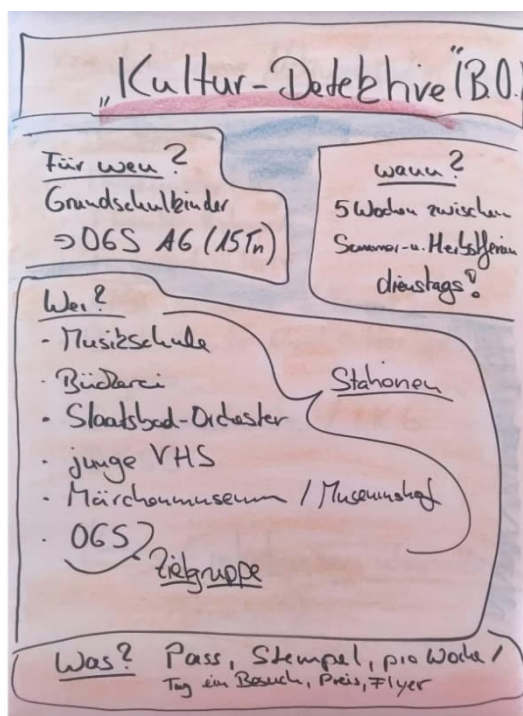 „Kultur-Detektive" (B.O.)
Für wen?
Grundschulkinder
⇒ OGS AG (15 Tn)
wann?
5 Wochen zwischen
Sommer- u. Herbstferien
dienstags?
Wer?
· Musikschule
· Bücherei
· Staatsbad-Orchester
· junge VHS
· Märchenmuseum / Museumshof
· OGS
Stationen
Zielgruppe
Was? Pass, Stempel, pro Woche /
Tag ein Besuch, Preis, Flyer